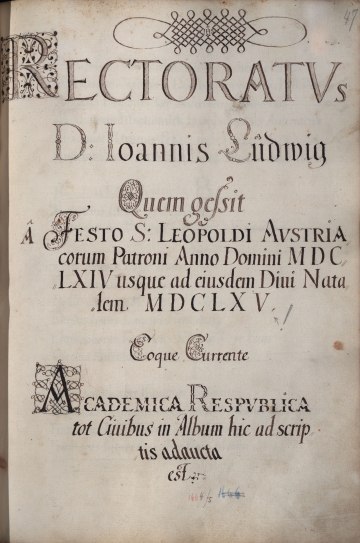 47
RECTORATVs
D: Ioannis Lûdwig
Quem geſsit
Â FESTO S: LEOPOLDI AVSTRIA
corum Patroni Anno Domini MDC
LXIV usque ad eiusdem Diui Nata
lem MDCLXV.
Eoque Currente
ACADEMICA RESPVBLICA
tot Ciuibus in Album hic ad scrip
tis adaucta
est.
1664/5